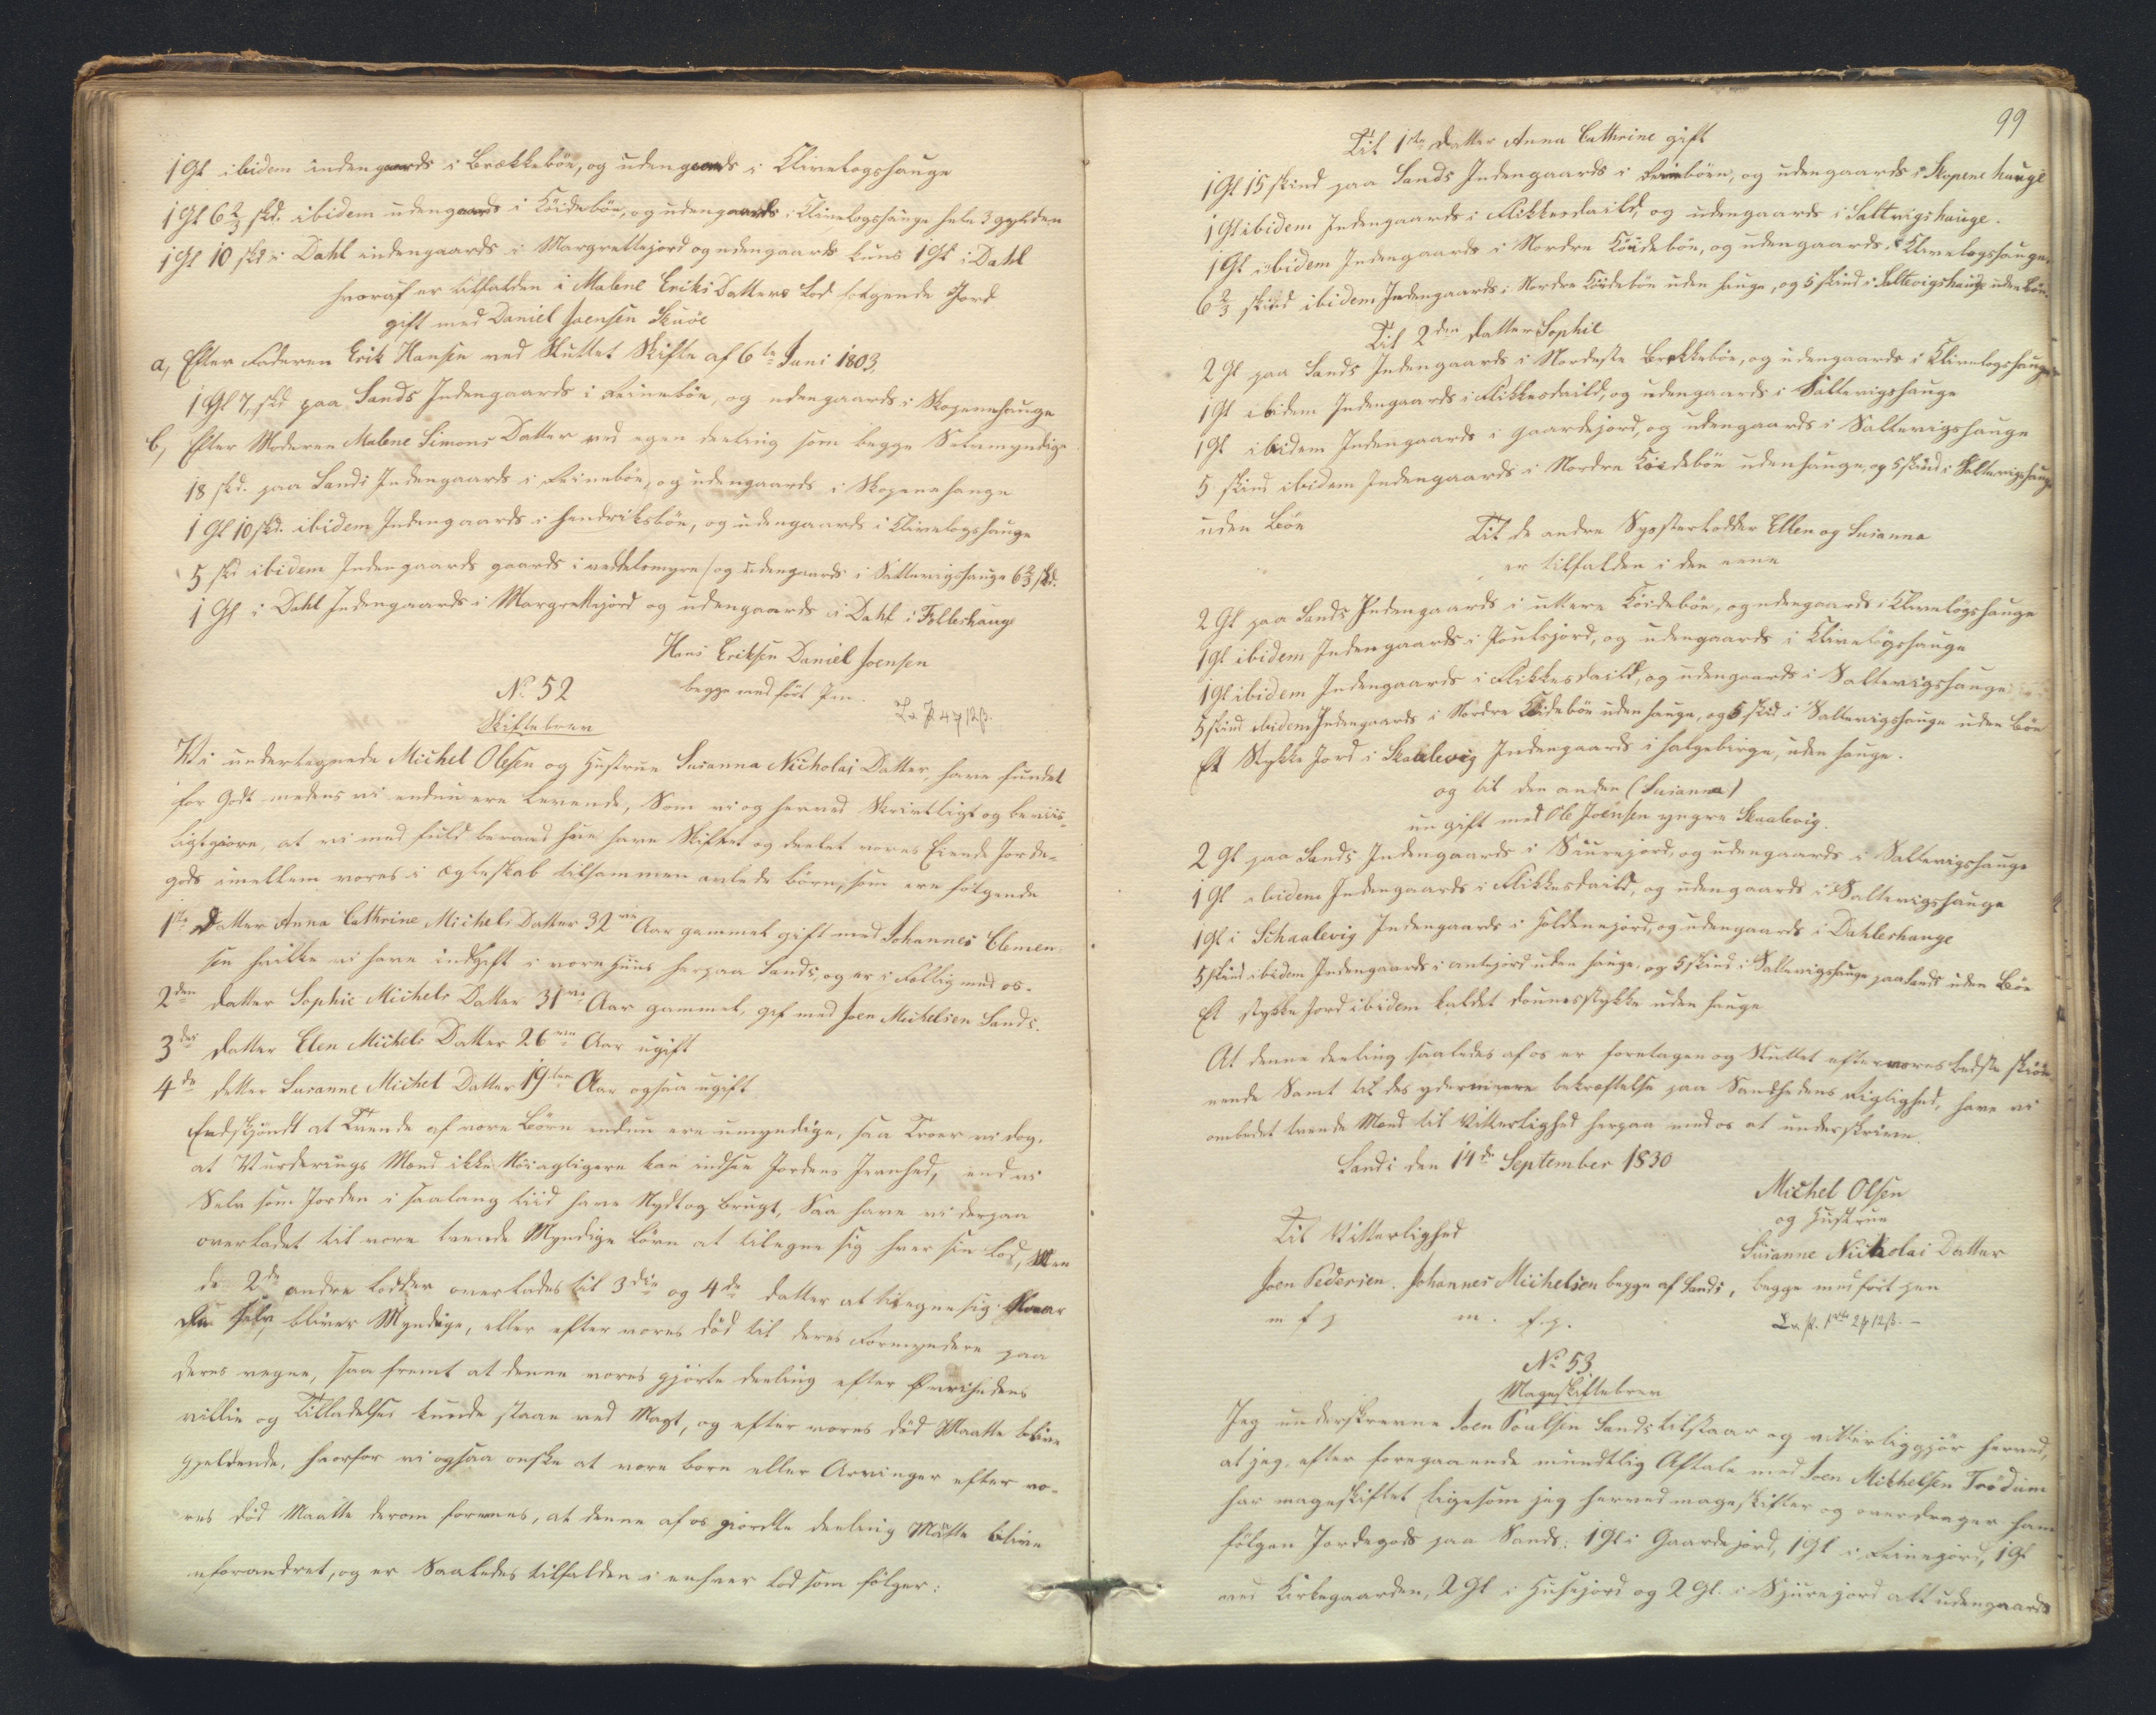 1 Gl ibidem indengaards i Brækkebøe, og udengaards i Klivelogshauge
1 Gl 6 2/3 skd. ibidem udengaards i Köidebøe, og udengaards i Klivelogshauge hele 3 gylden
1 Gl 10 skd i Dahl indengaards i Margrettejord og udengaards kuns 1 Gl i Dahl
hvoraf er tilfalden i Malene Eriks Datters Lod følgende Jord
gift med Daniel Joensen Skuöe
a, Efter Faderen Erik Hansen ved Sluttet Skifte af 6te Juni 1803.
1 Gl 7 skd paa Sands Indengaards i Reinebøe, og udengaards i Skopenehauge
b, Efter Moderen Malene Simons Datter ved egen deeling som begge Selvmyndige
18 skd. paa Sands Indengaards i Reinebøe, og udengaards i Skopenehauge
1 Gl 10 skd. ibidem Indengaards i Hendriksbøe, og udengaards i Klivelogshauge
5 skd ibidem Indengaards gaards i møttelsmyre / og udengaards i Saltevigshauge 6 2/3 skd.
1 Gl i Dahl Indengaards i Margrettejord og udengaards i Dahl i Folleshauge
Hans Eriksen Daniel Joensen
begge med fört Pen.
No. 52
Skiftebrev
Vi undertegnede Michel Olesen og Hustrue Susanna Nicholai Datter, have fundet
for Godt medens vi endnu ere Levende, Som vi og herved Skriftligt og beviis-
ligtgiöre, at vi med fuld beraad hue have Skiftet og deelet vores Eiende Jorde-
gods imellem vores i Ægteskab tilsammen avlede Börn, som ere fölgende
1ste Datter Anna Cathrine Michels Datter 32 Aar gammel gift med Johannes Clemen
sen hvilke vi have indgift i vore Huus herpaa Sands, og er i Fellig med os.
2den Datter Sophie Michels Datter 31 Aar gammel, gift med Joen Michelsen Sands.
3die Datter Elen Michels Datter 26 Aar ugift
4de Datter Susanne Michel Datter 19ten Aar ogsaa ugift
Endskjöndt at Tvende af vore Börn endnu ere umyndige, saa Troer vi dog,
at Vurderings Mænd ikke Nöiagtigere kan indsee Jordens Jevnhed, end vi
Selv som Jorden i saalang tiid have Nydt og brugt, Saa have vi derpaa
overladet til vore tvende Myndige börn at tilegne sig hver sin Lod, Men
de 2de andre Lodder overlades til 3die og 4de datter at tilegne sig: Naar
de selv bliver Myndige, eller efter vores död til deres Formyndere paa
deres vegne, saa fremt at denne vores gjorte deeling efter Øvrihedens
villie og Tilladelser kunde staae ved Magt, og efter vores död Maatte blive
gjeldende, hvorfor vi ogsaa önske at vore born eller Arvinger efter vo-
res död Maatte derom forenes, at denne af os giordte deeling Måtte blive
uforandret, og er Saaledes tilfalden i enhver Lod som fölger:
99
Til 1ste Datter Anna Cathrine gift
1 Gl 15 skind paa Sands Indengaards i Reinebøen, og udengaards i Skopene hauge
1 Gl ibidem Indengaards i Flikkesdaild, og udengaards i Saltvigshauge.
1 Gl ibidem Indengaards i Nordre Köidebøe, og udengaards i Klivelogshauge,
6 2/3 skind ibidem Indengaards i Nordre Köidebøe uden hauge, og 5 skind i Saltevigshauge uden Bøe.
Til 2den Datter Sophie
2 Gl paa Sands Indengaards i Nordeste Brekkebøe, og udengaards i Klivelogshauge
1 Gl ibidem Indengaards i Flikkesdaild, og udengaards i Saltevigshauge
1 Gl ibidem Indengaards i Gaardejord, og udengaards i Saltevigshauge
5 skind ibidem Indengaards i Nordre Köidebøe uden hauge, og 5 skind i Saltevigshauge
uden Bøe
Til de andre Sÿsterlodder Ellen og Susanna
er tilfalden i den eene
2 Gl paa Sands Indengaards i uttere Köidebøe, og udengaards i Klivelögshauge
1 Gl ibidem Indengaards i Poulsjord, og udengaards i Klivelögshauge
1 Gl ibidem Indengaards i Flikkesdaild, og udengaards i Saltevigshauge
5 skind ibidem Indengaards i Nordre Köidebøe uden hauge, og 5 skd i Saltevigshauge uden Bøe
Et Stykke Jord i Skaalevig Indengaards i Halgebirge, uden hauge.
og til den anden (Susanna)
nu gift med Ole Joensen yngre Skaalevig.
2 Gl paa Sands Indengaards i Siurejord, og udengaards i Saltevigshauge
1 Gl ibidem Indengaards i Flikkesdaild, og udengaards i Saltevigshauge
1 Gl i Schaalevig Indengaards i Holdenejord, og udengaards i Dahleshauge
5 skind ibidem Indengaards i antejord uden hauge, og 5 skind i Saltevigshauge paa Sands uden Bøe
Et stykke Jord ibidem kaldet dounesstykke uden hauge
At denne deeling saaledes af os er foretagen og Sluttet efter vores bedste skiön-
nende Samt til des ydermeere bekræftelse paa Sandhedens Rigtighed, have vi
ombedet tvende Mænd til Vitterlighed herpaa med os at underskrive.
Sands den 14de September 1830
Michel Olsen
og Hustrue
Susanne Nicholai Datter
Til Vitterlighed
Joen Pedersen. Johannes Michelsen begge af Sands, begge med fört pen
m f p m. f. p.
No 53.
Mageskiftebrev
Jeg underskrevne Joen Poulsen Sands tilstaar og vitterliggjör herved,
at jeg efter foregaaende mundtlig Aftale med Joen Michelsen Trödum
har mageskiftet ligesom jeg herved mageskifter og overdrager ham
fölgen Jordegods paa Sands: 1 Gl i Gaardejord, 1 Gl i Reinejord, 1 Gl
ved Kirkegaarden, 2 Gl i Husejord og 2 Gl. i Sjurejord alt udengaards